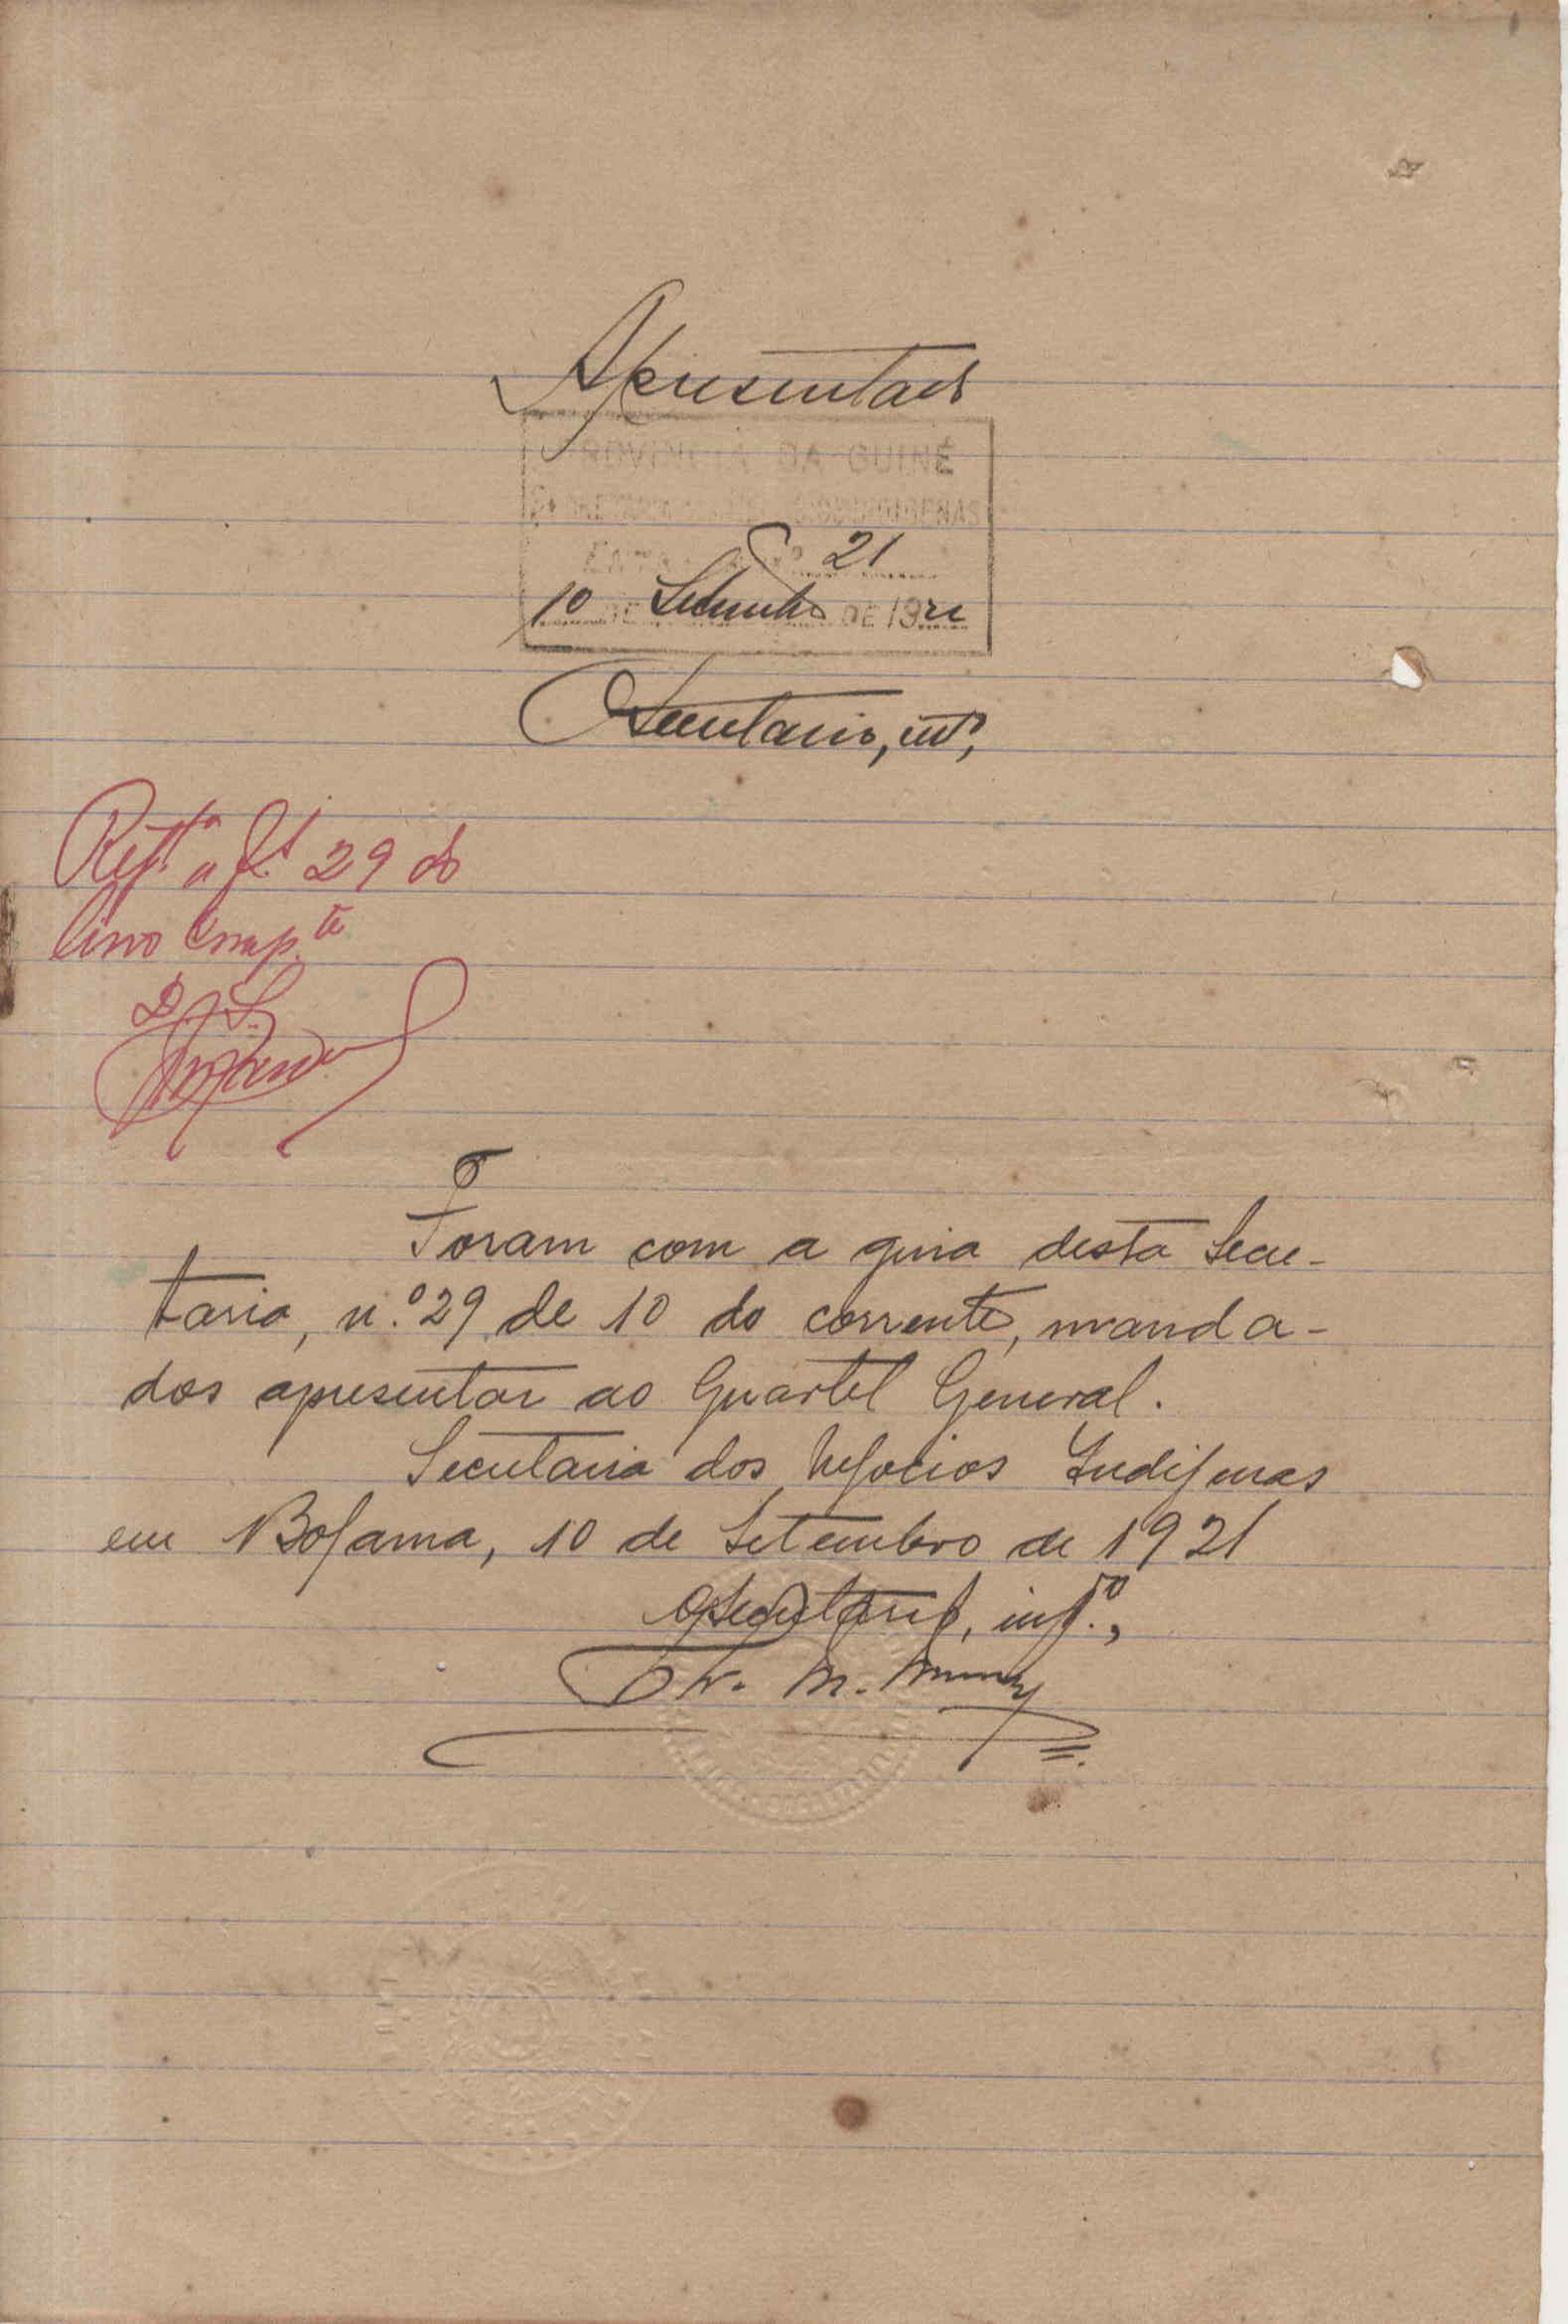 Apresentado
PROVINCIA DA GUINÉ
SECRETARIA DOS NEGOCIOS INDIGENAS
ENTRADA Nº 21
10 DE Setembro DE 1921
O Secretario, intº,
Regtº a fl. 29 do
livro comp.te
Foram com a guia desta Secre-
taria, n.º 29 de 10 do corrente, manda-
dos apresentar ao Quartel General.
Secretaria dos Negocios Indigenas
em Bolama, 10 de Setembro de 1921
O Secretario, intº.,